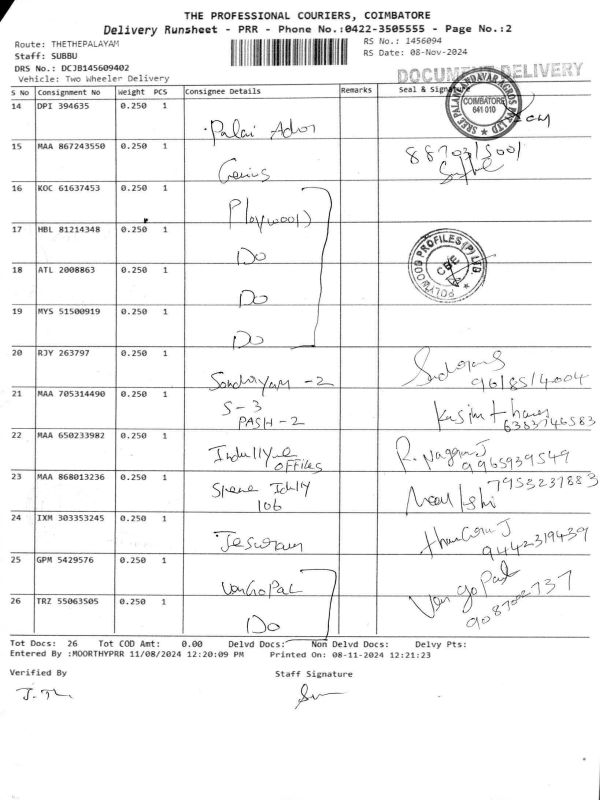 THE PROFESSIONAL COURIERS, COIMBATORE
Delivery Runsheet - PRR - Phone No.:0422-3505555 - Page No.:2
Route: THETHEPALAYAM
RS No.: 1456094
Staff: SUBBU
RS Date: 08-Nov-2024
DRS No.: DCJB145609402
Vehicle: Two Wheeler Delivery
DOCUMENT DELIVERY
S No Consignment No Weight PCS Consignee Details Remarks Seal &
14 DPI 394635 0.250 1
SREE PALANI ANDAVAR AGROS PVT LTD
COIMBATORE
641 010
Palai
15 MAA 867243550 0.250 1
Genius
16 KOC 61637453 0.250 1
Playwood
17 HBL 81214348 0.250 1
Do
POLYWOOD PROFILES (P) LTD
CBE
18 ATL 2008863 0.250 1
Do
19 MYS 51500919 0.250 1
Do
20 RJY 263797 0.250 1
-2
21 MAA 705314490 0.250 1
S-3
PASH-2
6383746583
22 MAA 650233982 0.250 1
OFFILES
9965939549
23 MAA 868013236 0.250 1
106
7953237883
24 IXM 303353245 0.250 1
9442319439
25 GPM 5429576 0.250 1
VenGoPal
Ven go Pal
26 TRZ 55063505 0.250 1
Do
Tot Docs: 26 Tot COD Amt: 0.00 Delvd Docs: Non Delvd Docs: Delvy Pts:
Entered By :MOORTHYPRR 11/08/2024 12:20:09 PM Printed On: 08-11-2024 12:21:23
Verified By Staff Signature